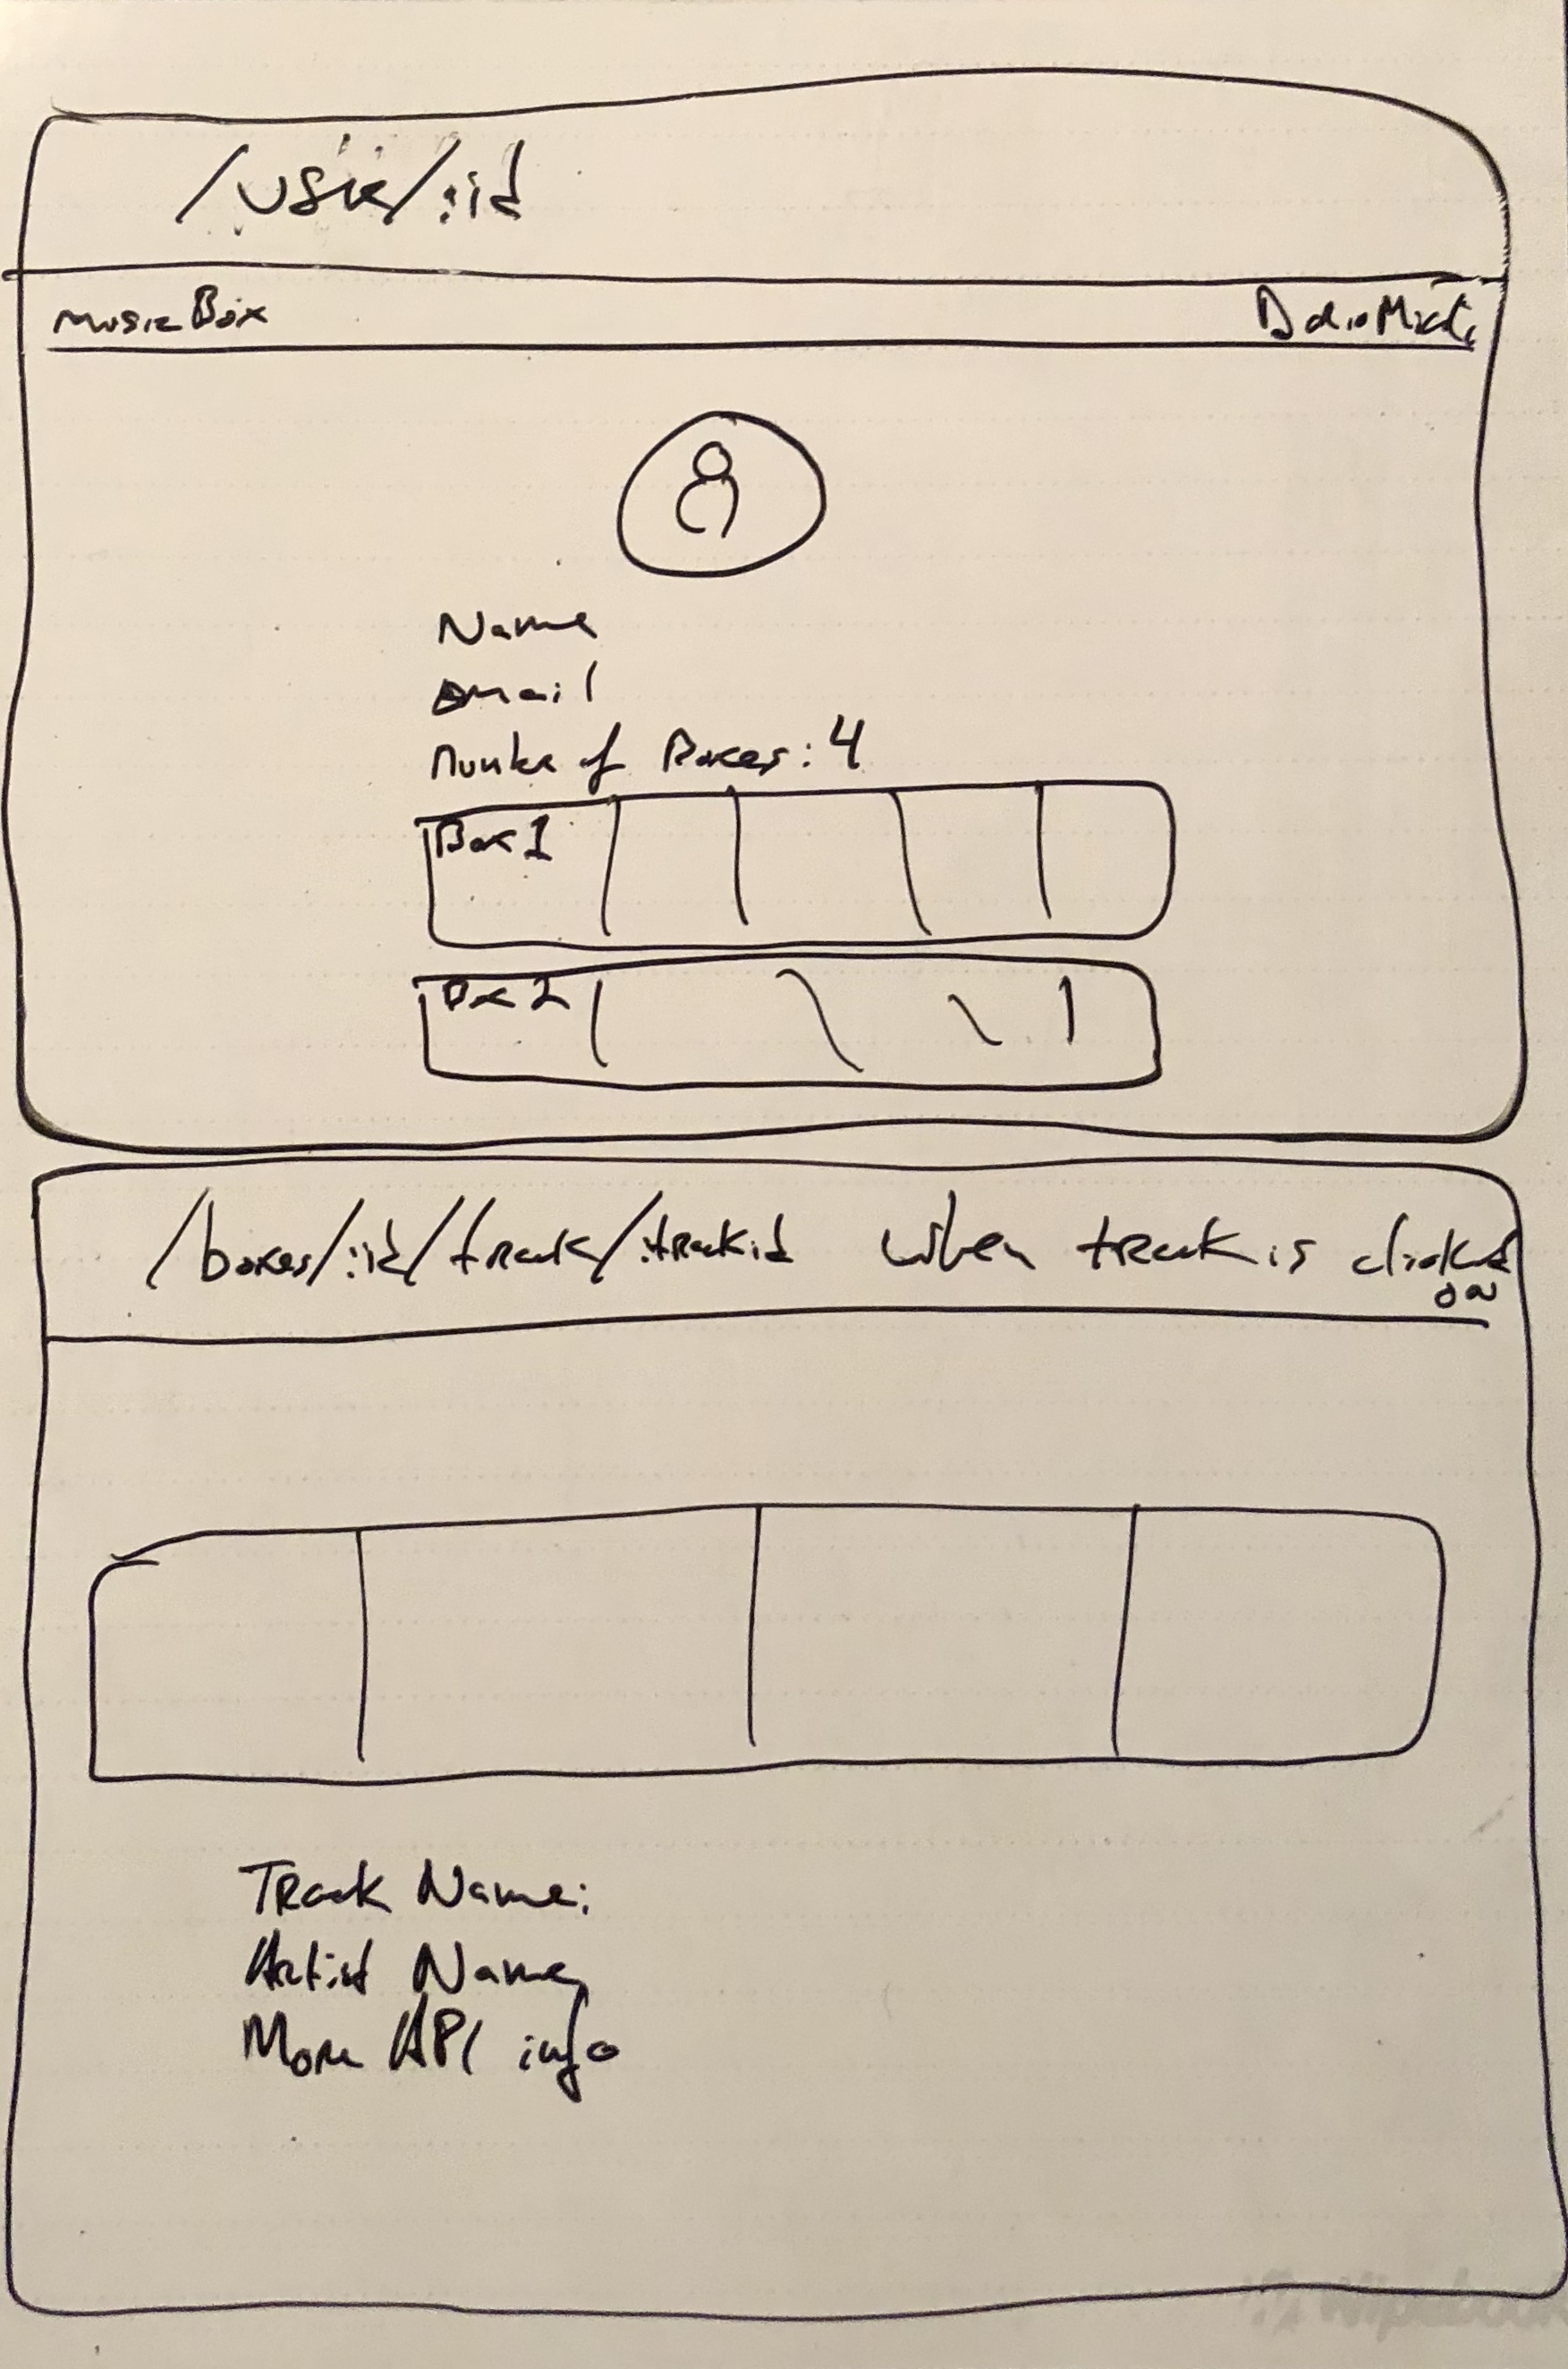 /user/:id
MusicBox
Name
email
Number of Boxes: 4
Box 1
Box 2
/boxes/:id/track/:trackid when track is clicked
on
Track Name:
Artist Name
More API info